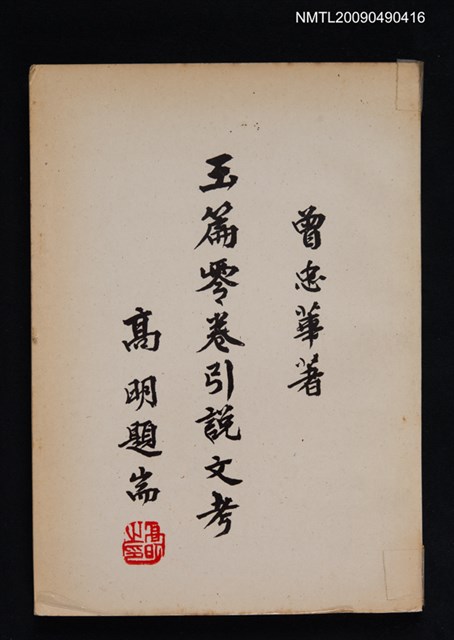 NMTL20090490416
曾忠華著
玉篇零卷引說文考
高明題耑
高明之印